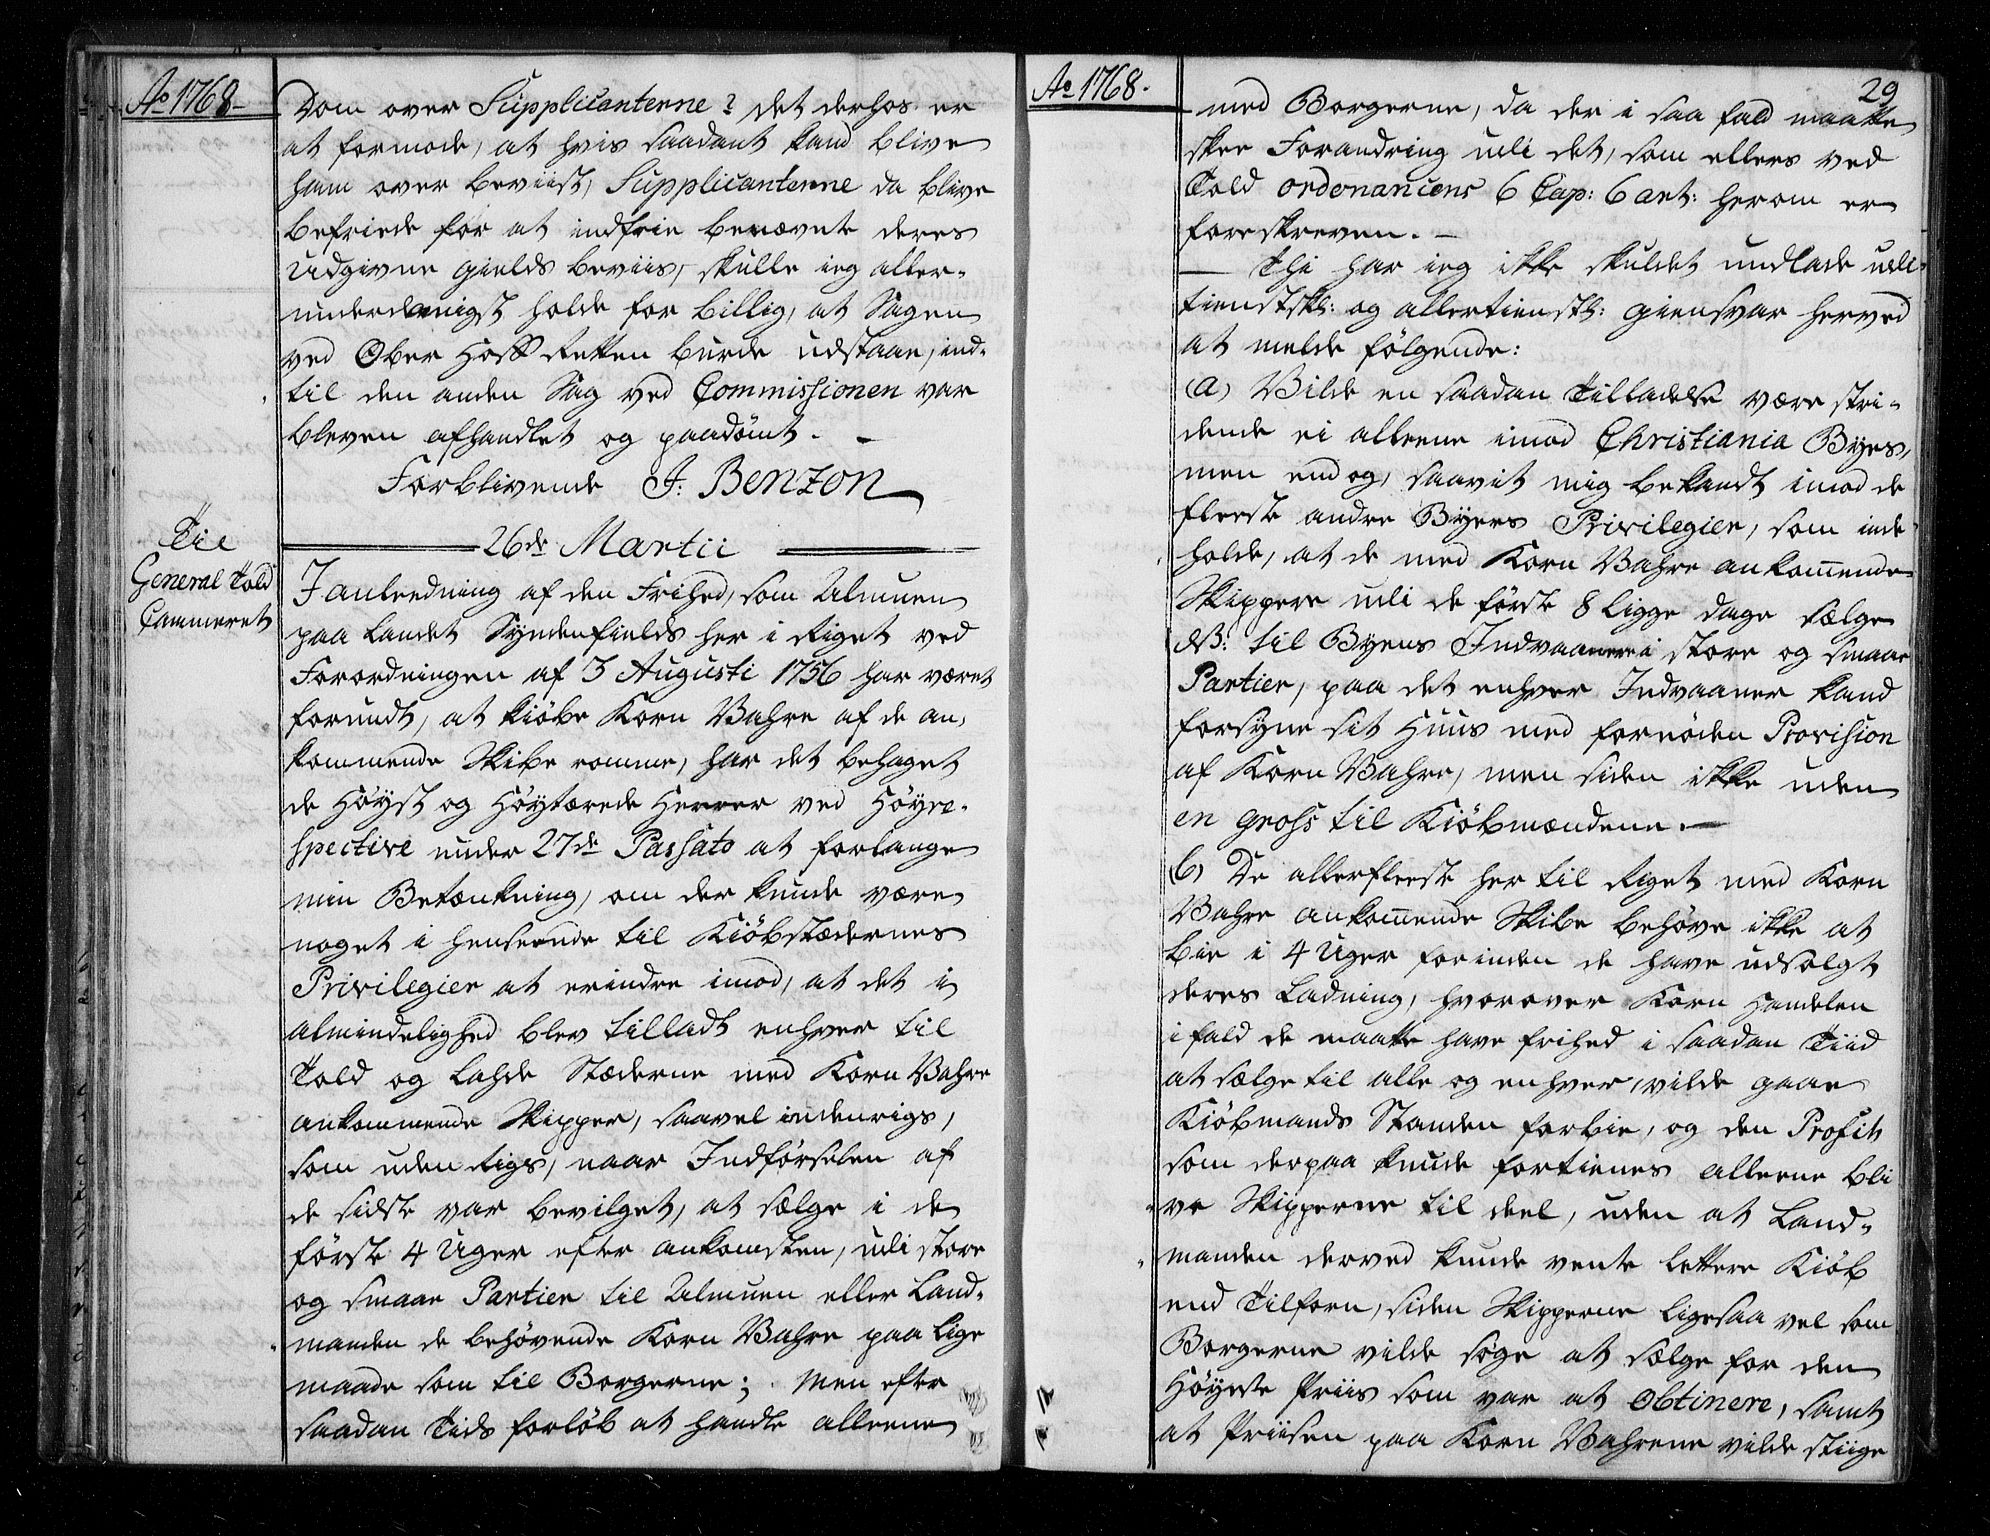 Ao 1768-
Dom over Supplicanterne? det derhos er
at formode, at hvis saadant kand blive
ham over beviist, Supplicanterne da blive
befriede for at indfrie benævnte deres
udgivne gields beviis, skulle ieg aller-
underdanigst holde for billig, at Sagen
ved Ober Hoff Retten burde udstaae, ind-
til den anden Sag ved Commissionen var
bleven afhandlet og paadömt. -
Forblivende J. Benzon
26de Martii
Til
General Told
Cammeret
I anleedning af den Frihed, som Almuen
paa Landet Syndenfields her i Riget ved
Forordningen af 3 Augusti 1756 har været
forundt, at kiöbe Korn Vahre af de an-
kommende Skibe romme, har det behaget
de Höyst og Höytærede Herrer ved Höyre-
spective under 27de Passato at forlange
min Betænkning, om der kunde være
noget i henseende til Kiöbstædernes
Privilegier at erindre imod, at det i
almindelighed blev tilladt enhver til
Told og Lahde Stæderne med Korn Vahre
ankommende Skipper, saavel indenrigs,
som uden Rigs, naar Indförselen af
de sidste var bevilget, at sælge i de
förste 4 Uger efter ankomsten, udi store
og smaae Partier til Almuen eller Land-
manden de behövende Korn Vahre paa lige
maade som til Borgerne; Men efter
saadan Tids forlöb at handle alleene
Ao 1768.
29
med Borgerne, da der i saa fald maatte
skee Forandring udi det, som ellers ved
Told ordonancens 6 Cap: 6 art: herom er
foreskreven. -
Thi har ieg ikke skuldet undlade udi
tienstskl: og allertienstl: giensvar herved
at melde fölgende:
(a) Vilde en saadan Tilladelse være stri-
dende ei alleene imod Christiania Byes,
men endog, saavit mig bekandt imod de
fleeste andre Byers Privilegier, som inde
holde, at de med Korn Vahre ankommende
Skippere udi de förste 8 Ligge dage sælge
NB: til Byens Indvaanere i store og smaae
Partier, paa det enhver Indvaaner kand
forsyne sit Huus med fornöden Provision
af Korn Vahre, men siden ikke uden
en gross til Kiöbmændene. -
(b) De allerfleeste her til Riget med Korn
Vahre ankommende Skibe behöve ikke at
bie i 4 Uger forinden de have udsolgt
deres Ladning, hvorover Korn Handelen
i fald de maatte have frihed i saadan Tiid
at sælge til alle og enhver, vilde gaae
Kiöbmands Standen forbie, og den Profit
som derpaa kunde fortienes alleene bli
ve Skipperne til deel, uden at Land-
manden derved kunde vente lettere Kiöb
end Tilforn, siden Skipperne ligesaa vel som
Borgerne vilde söge at sælge for den
Höyeste Priis som var at obtinere, samt
at Priisen paa Korn Vahrene vilde stiige